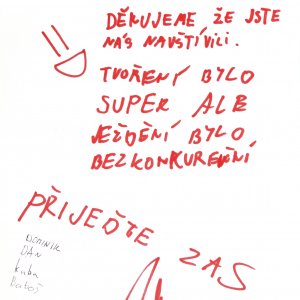 DĚKUJEME ŽE JSTE
NÁS NAVŠTÍVILI.
TVOŘENÍ BYLO
SUPER ALE
JEŽDĚNÍ BYLO
BEZKONKUREŇNÍ
PŘIJEĎTE ZAS
DOMINIK
DAN
Kuba